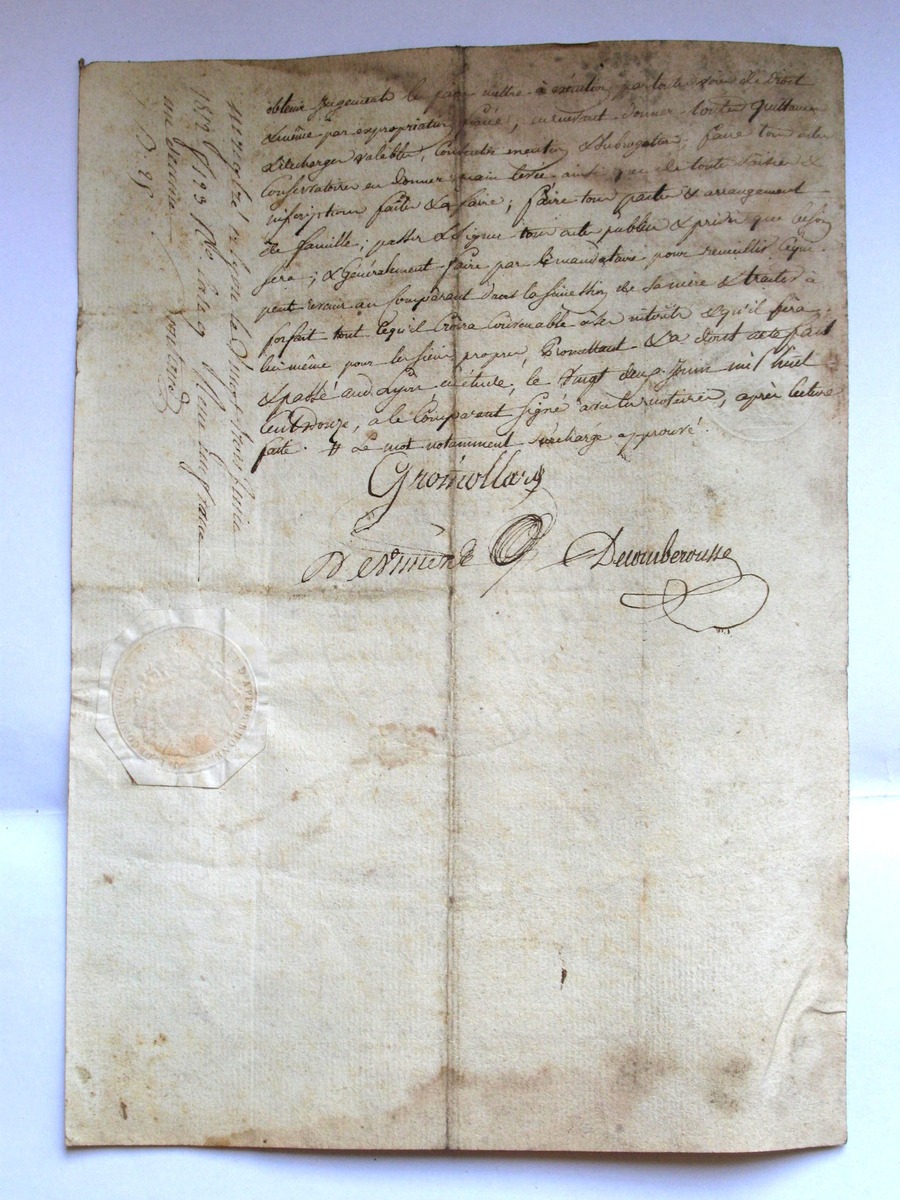 obtenir jugement le faire mettre à exécution par toute voie de droit
& même par expropriation forcée, en recevant donner toutes quittances
& décharges valables, consentir mention & subrogation, faire tous actes
conservatoires en donner main levée ainsi que de toute saisie &
inscriptions faites & à faire; faire tous pactes & arrangements
de famille; passer & signer tous actes publics & privés que besoin
sera; & généralement faire par le mandataire pour recueillir ce qui
peut revenir au comparant dans la succession de sa mère & traiter à
forfait tout ce qu'il croira convenable à ses intérêts & qu'il fera
lui même pour les siens propres, Promettant &a dont acte fait
& passé audit Lyon en l'étude, le vingt deux juin mil huit
cent douze, a le comparant signé avec les notaires, après lecture
faite. # Le mot notamment surchargé approuvé.
Gromollard
Decomberousse
Enregistré à Lyon le
1812 f° 123
un franc
centimes
D. 25